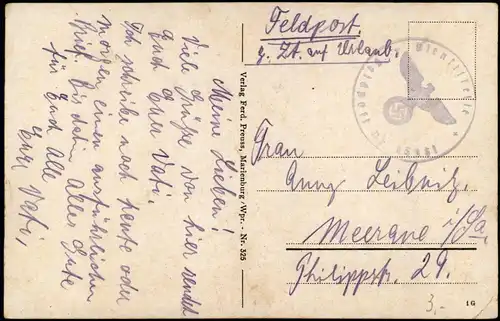 Meine Lieben!
Viele Grüße von hier sendet
Euch Euer Vati.
Ich schreibe noch heute oder
morgen einen ausführlichen
Brief. Bis dahin alles Gute
für Euch Alle
Euer Vati,
Verlag Ferd. Preuss, Marienburg/Wpr. - Nr. 325
Feldpost.
z. Zt. auf Urlaub.
Dienststelle
Frau
Anny Leibnitz,
Meerane i/Sa.
Philippstr. 29.
3,-
1G